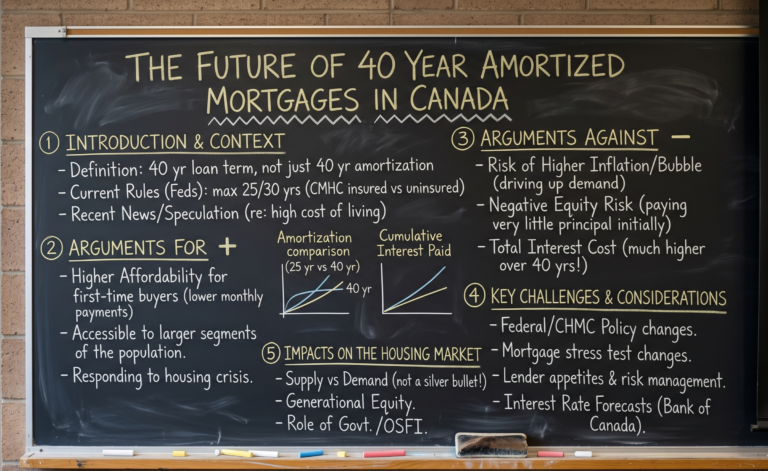 THE FUTURE OF 40 YEAR AMORTIZED
MORTGAGES IN CANADA
① INTRODUCTION & CONTEXT
- Definition: 40 yr loan term, not just 40 yr amortization
- Current Rules (Feds): max 25/30 yrs (CMHC insured vs uninsured)
- Recent News/Speculation (re: high cost of living)
② ARGUMENTS FOR +
- Higher Affordability for
first-time buyers (lower monthly
payments)
- Accessible to larger segments
of the population.
- Responding to housing crisis.
Amortization
comparison
(25 yr vs 40 yr)
40 yr
Cumulative
Interest Paid
③ ARGUMENTS AGAINST −
- Risk of Higher Inflation/Bubble
(driving up demand)
- Negative Equity Risk (paying
very little principal initially)
- Total Interest Cost (much higher
over 40 yrs!)
④ KEY CHALLENGES & CONSIDERATIONS
- Federal/CHMC Policy changes.
- Mortgage stress test changes.
- Lender appetites & risk management.
- Interest Rate Forecasts (Bank of
Canada).
⑤ IMPACTS ON THE HOUSING MARKET
- Supply vs Demand (not a silver bullet!)
- Generational Equity.
- Role of Govt./OSFI.